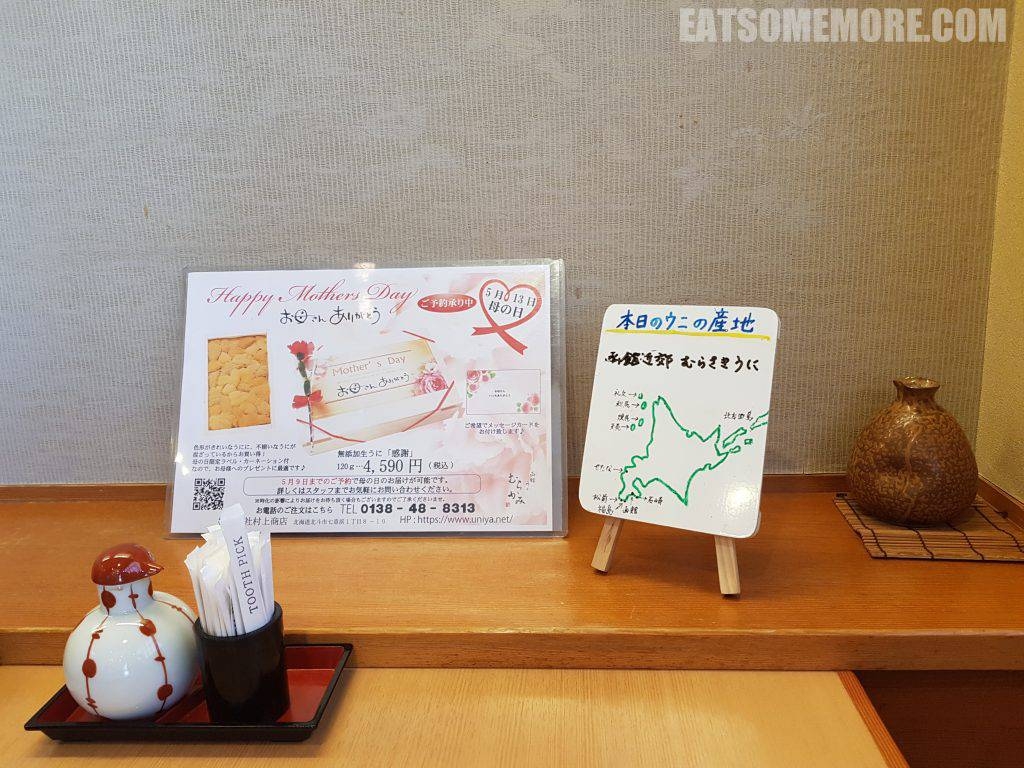 EATSOMEMORE.COM
Happy Mothers Day
お母さん ありがとう
ご予約承り中
5月13日
母の日
Mother's Day
お母さん ありがとう
ご希望でメッセージカードを
お付け致します♪
色形がきれいなうにに、不揃いなうにが
混ざっているからお買い得!
母の日限定ラベル・カーネーション付
なので、お母様へのプレゼントに最適です♪
無添加生うに「感謝」
120g…4,590円(税込)
5月9日までのご予約で母の日のお届けが可能です。
詳しくはスタッフまでお気軽にお問い合わせください。
※時化の影響によりお届けをお待ち頂く場合もございますのでご了承くださいませ。
お電話のご注文はこちら TEL 0138-48-8313
社村上商店 北海道北斗市七重浜1丁目8-10 HP:https://www.uniya.net/
むらかみ
本日のウニの産地
函館近郊 むらさきうに
礼文→
利尻→
焼尻→
天売→
北方四島
せたな→
松前→
←石崎
福島
函館
TOOTH PICK